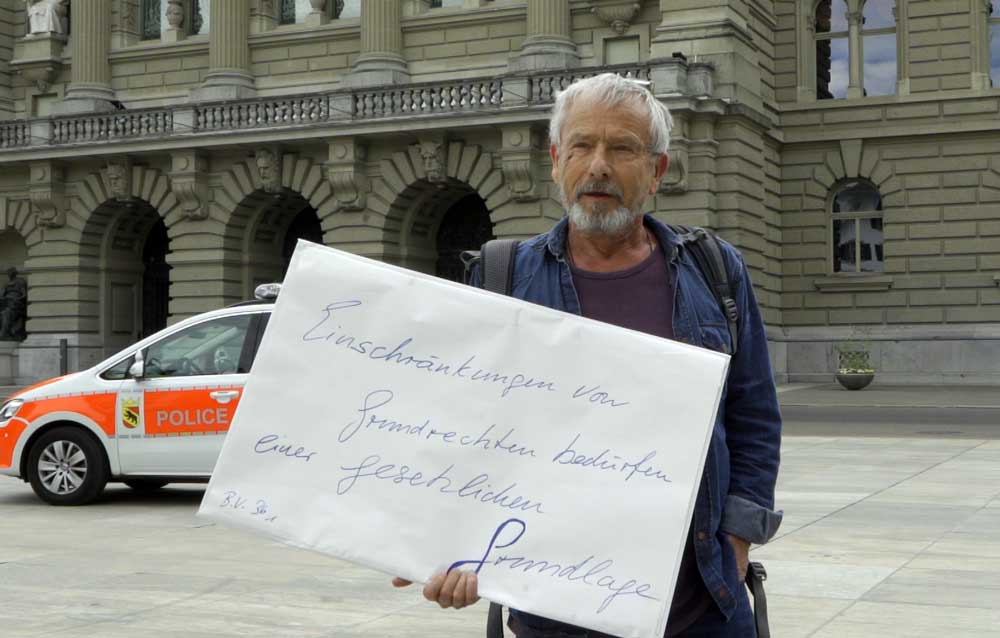 POLICE
Einschränkungen von
Grundrechten bedürfen
einer gesetzlichen
Grundlage
B.V. 36 1